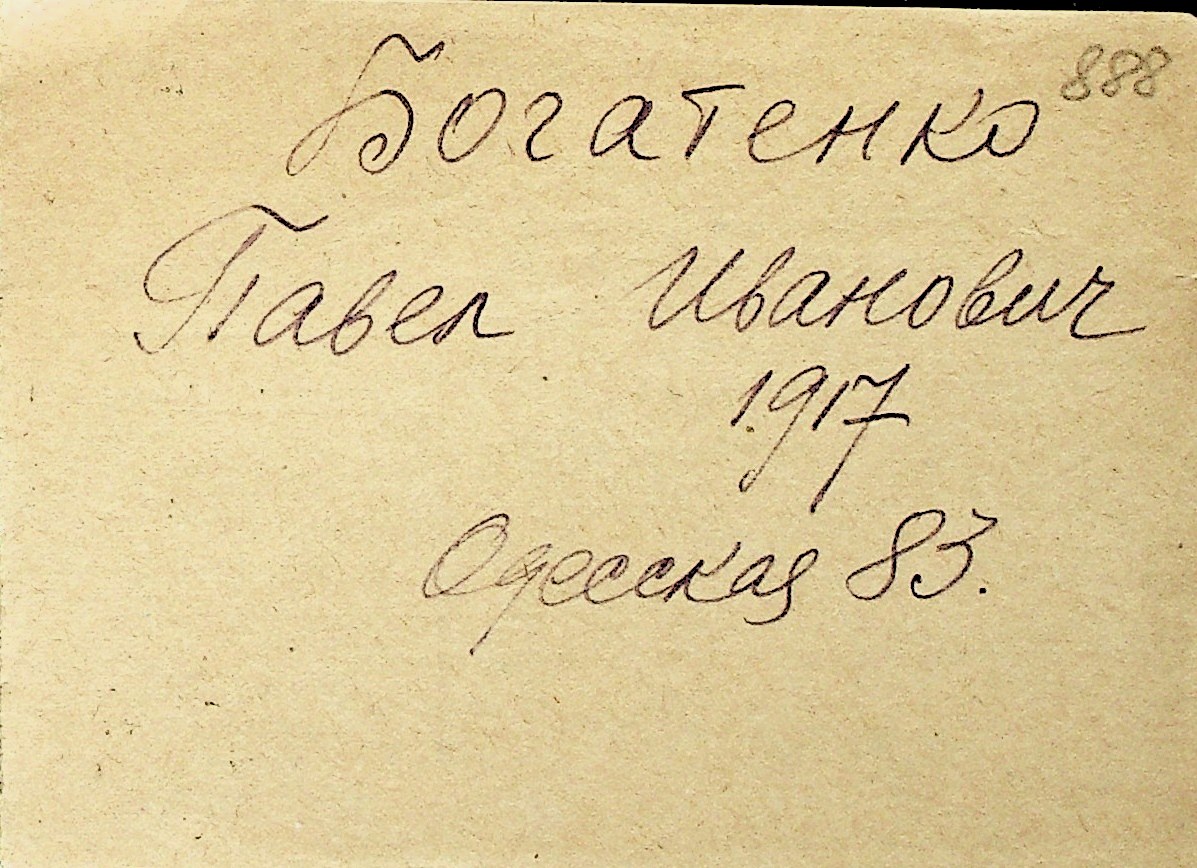 888
Богатенко
Павел Иванович
1917
Одесская 83.